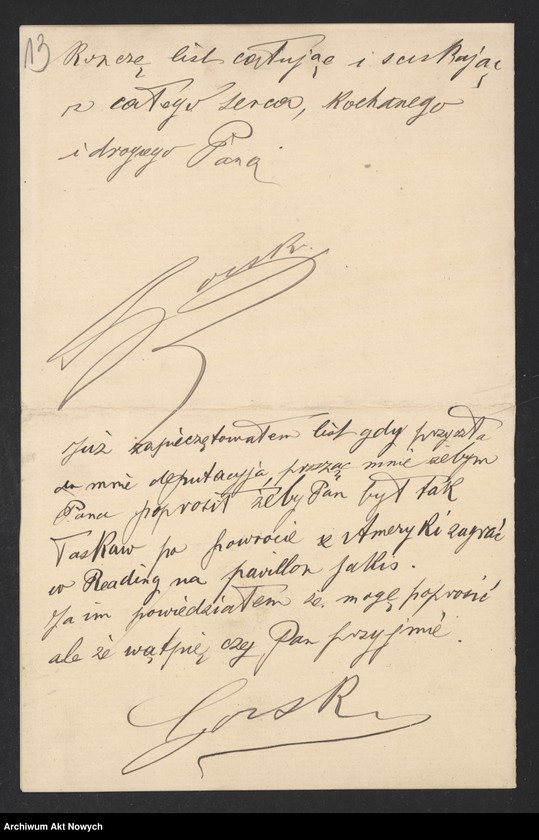 13
Kończę list całując i sciskając
z całego serca, Kochanego
i drogiego Pana
Górski
Już zapieczętowałem list gdy przyszła
do mnie deputacyja, prosząc mnie żebym
Pana poprosił żeby Pan był tak
łaskaw po powrocie z Ameryki zagrać
w Reading na pavillon
Ja im powiedziałem że mogę poprosić
ale że wątpię czy Pan przyjmie.
Gorski
Archiwum Akt Nowych